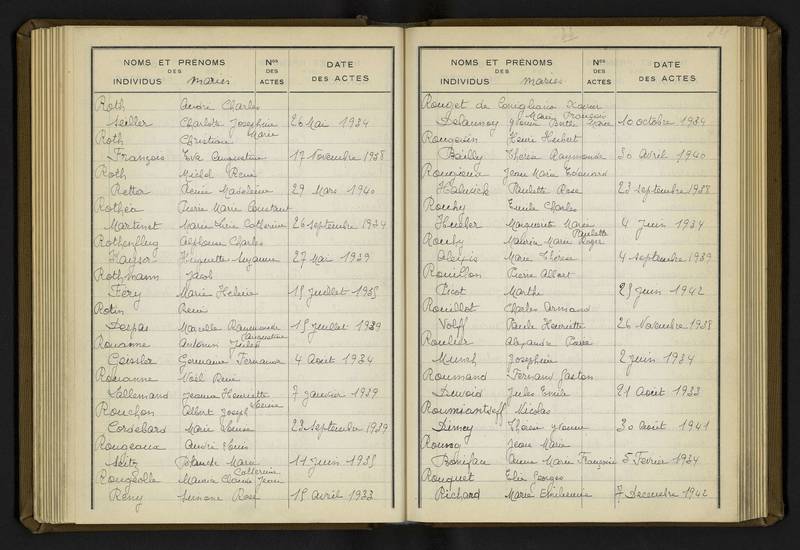 NOMS ET PRÉNOMS DES INDIVIDUS mariés Nos DES ACTES DATE DES ACTES
Roth André Charles
Seiller Charlotte Joséphine 26 Mai 1934
Roth Christian Marie
François Eve Augustine 17 Novembre 1938
Roth Michel René
Retter Renée Madeleine 29 Mars 1940
Rothéa Pierre Marie Constant
Martinet Marie Catherine 26 septembre 1934
Rothenflug Alphonse Charles
Hauser Henriette Suzanne 27 Mai 1939
Rothmann Jacob
Fery Marie Hélène 15 juillet 1935
Rotin René
Despas Marcelle Raymonde Augustine 15 juillet 1939
Rouanne Antonin Julien
Geissler Germaine Fernande 4 Aout 1934
Rouanne Noël René
Lallemand Jeanne Henriette 7 janvier 1939
Rouchon Albert Joseph
Cordebard Marie Louise 23 septembre 1939
Rougeaux André Louis
Seitz Blanche Marie 11 juin 1935
Rougeolle Maurice Claude Jean
Remy Simone Rose 15 Avril 1933
NOMS ET PRÉNOMS DES INDIVIDUS mariés Nos DES ACTES DATE DES ACTES
Rouget de Xavier
Marie François
Delaunoy 10 octobre 1934
Rougevin Henri Hubert
Bailly Thérèse Raymonde 30 Avril 1940
Rougieux Jean Marie Edouard
Paulette Rose 23 septembre 1938
Rouhy Emile Charles
Hubler Marguerite Marie Paulette 4 juin 1934
Rouhy Maurice Marie Roger
Alexis Marie Thérèse 4 septembre 1939
Rouillon Pierre Albert
Picot Marthe 25 juin 1942
Rouillot Charles Armand
Volff Paule Henriette 26 Novembre 1938
Roulier Alexandre Pierre
Munch Joséphine 2 juin 1934
Roumand Fernand Gaston
Jules Emile 21 Aout 1933
Roumiantseff Nicolas
Yvonne 30 aout 1941
Jean Marie
Bonifan Anne Marie Françoise 5 Fevrier 1934
Rouquet Elie Georges
Richard Marie 7 Decembre 1942